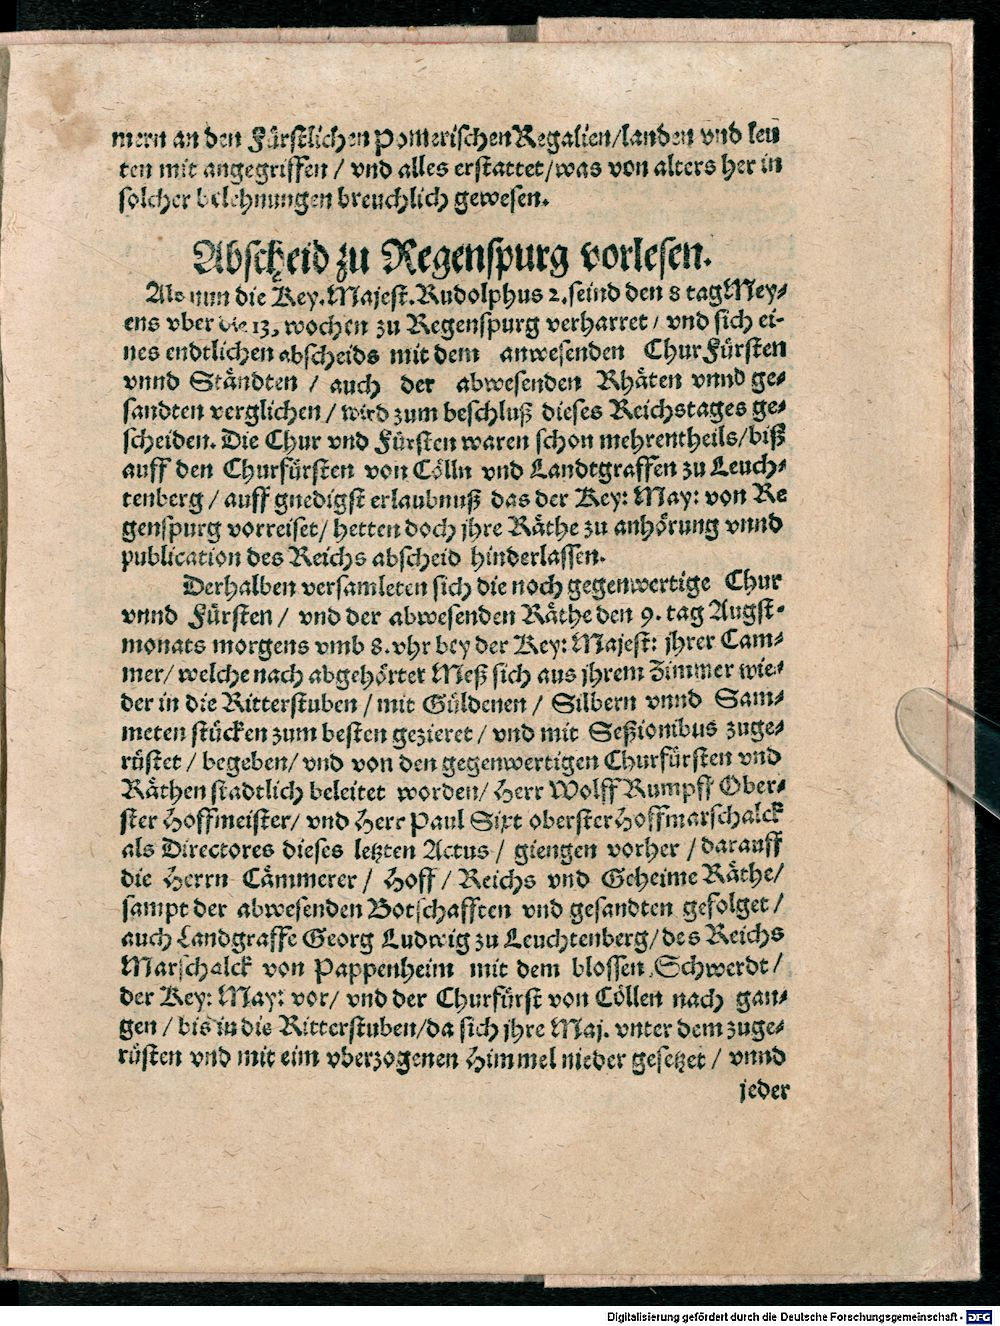 mern an den Fürstlichen Pomerischen Regalien/landen vnd leu
ten mit angegriffen / vnd alles erstattet/was von alters her in
solcher belehnungen breuchlich gewesen.
Abscheid zu Regenspurg vorlesen.
Als nun die Key. Majest. Rudolphus 2. seind den 8 tag Mey-
ens vber die 13, wochen zu Regenspurg verharret / vnd sich ei-
nes endtlichen abscheids mit dem anwesenden ChurFürsten
vnnd Ständten / auch der abwesenden Rhäten vnnd ge-
sandten verglichen / wird zum beschluß dieses Reichstages ge-
scheiden. Die Chur vnd Fürsten waren schon mehrentheils/biß
auff den Churfürsten von Cölln vnd Landtgraffen zu Leuch-
tenberg / auff gnedigst erlaubnuß das der Key: May: von Re
genspurg vorreiset/ hetten doch jhre Räthe zu anhörung vnnd
publication des Reichs abscheid hinderlassen.
Derhalben versamleten sich die noch gegenwertige Chur
vnnd Fürsten / vnd der abwesenden Räthe den 9. tag Augst-
monats morgens vmb 8. vhr bey der Key: Majest: jhrer Cam-
mer/ welche nach abgehörter Meß sich aus jhrem Zimmer wie-
der in die Ritterstuben / mit Güldenen / Silbern vnnd Sam-
meten stücken zum besten gezieret / vnd mit Seßionibus zuge-
rüstet / begeben/ vnd von den gegenwertigen Churfürsten vnd
Räthen stadtlich beleitet worden/ Herr Wolff Rumpff Ober-
ster Hoffmeister/ vnd Herr Paul Sixt oberster Hoffmarschalck
als Directores dieses letzten Actus / giengen vorher / darauff
die Herrn Cämmerer / Hoff / Reichs vnd Geheime Räthe/
sampt der abwesenden Botschafften vnd gesandten gefolget /
auch Landgraffe Georg Ludwig zu Leuchtenberg/ des Reichs
Marschalck von Pappenheim mit dem blossen Schwerdt /
der Key: May: vor/ vnd der Churfürst von Cöllen nach gan-
gen / bis in die Ritterstuben/da sich jhre Maj. vnter dem zuge-
rüsten vnd mit eim vberzogenen Himmel nieder gesetzet / vnnd
jeder
Digitalisierung gefördert durch die Deutsche Forschungsgemeinschaft - DFG